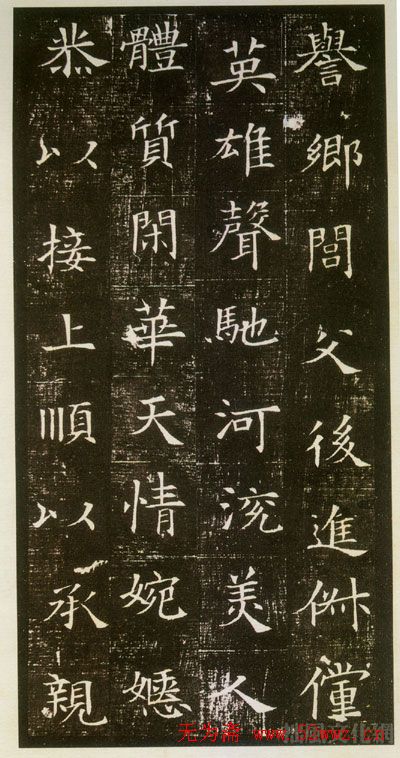 譽鄉閭父後進俶儻
英雄聲馳河沇美人
體質閑華天情婉嫕
恭以接上順以承親
无为斋 www.52wwz.cn